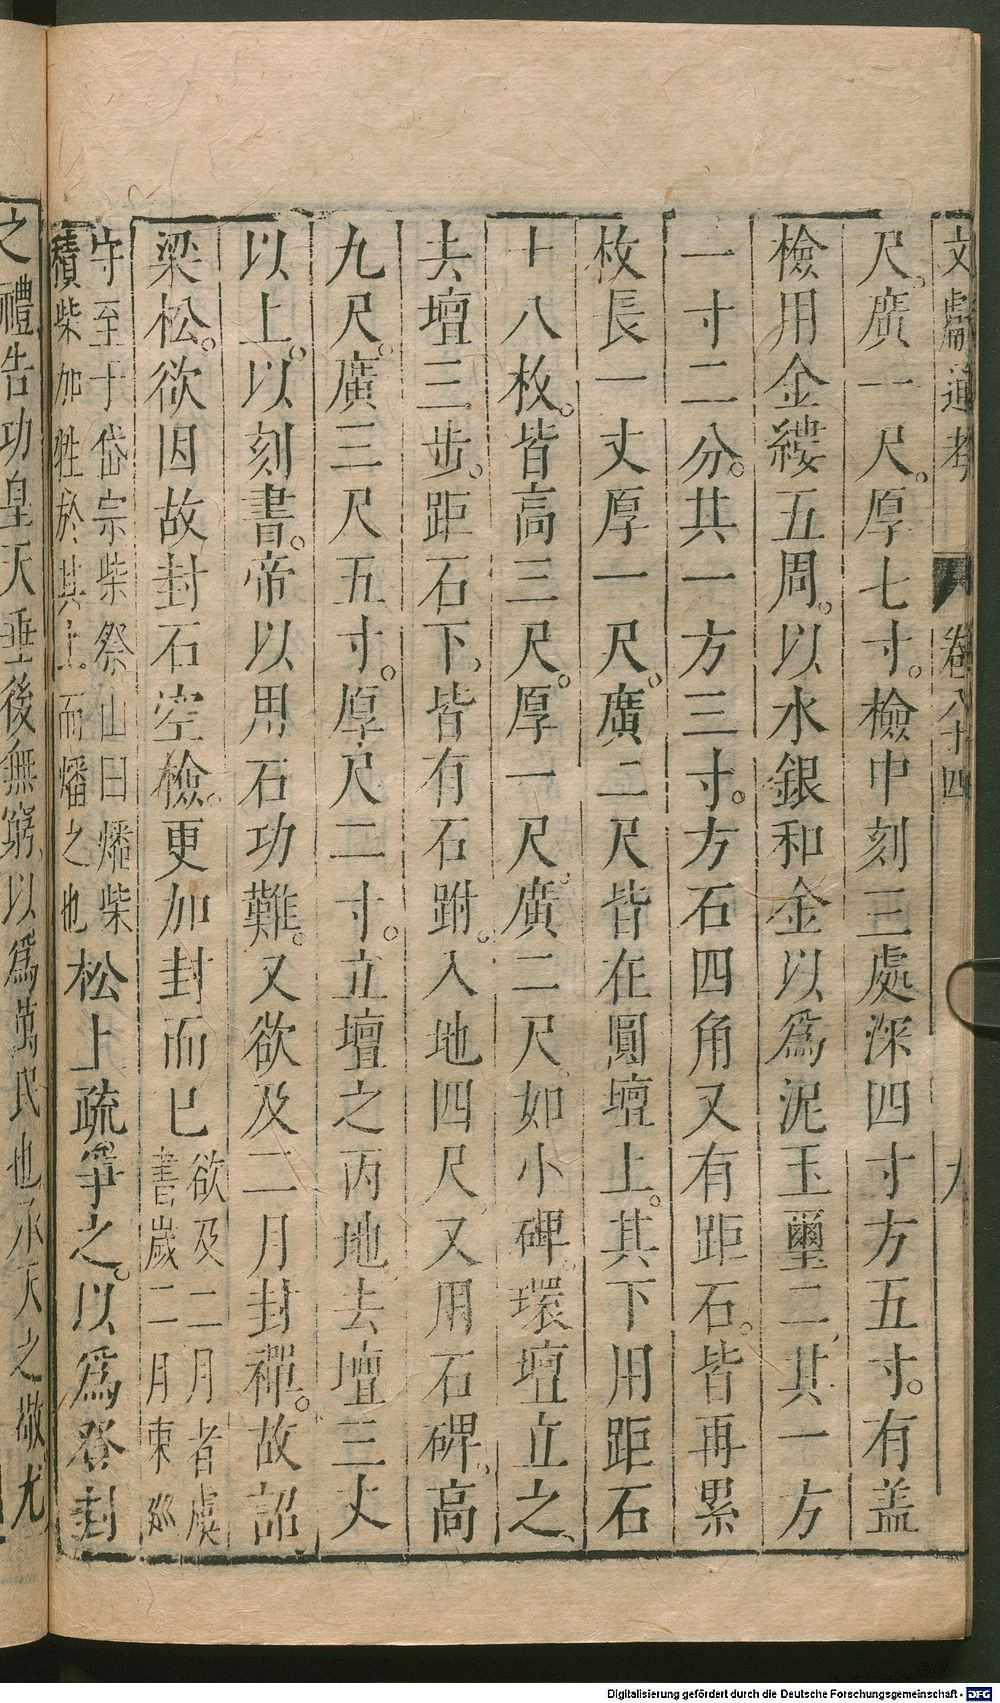 文獻通考 卷八十四 九
尺。廣一尺。厚七寸。檢中刻三處深四寸方五寸。有盖
檢用金縷五周。以水銀和金以爲泥玉璽二其一方
一寸二分。其一方三寸。方石四角又有距石。皆再累
枚長一丈厚一尺。廣二尺皆在圓壇上。其下用距石
十八枚。皆高三尺。厚一尺。廣二尺。如小碑。環壇立之、
去壇三步。距石下。皆有石跗。入地四尺。又用石碑、高
九尺。廣三尺五寸。厚尺二寸。立壇之丙地。去壇三丈
以上。以刻書。帝以用石功難。又欲及二月封禪。故詔
梁松。欲因故封石空檢。更加封而已欲及二月者虞書歲二月東廵
守至于岱宗柴祭山曰燔柴積柴加牲於其上而燔之也松上疏爭之。以爲登封
之禮告功皇天垂後無窮以爲萬民也承天之敬尤
Digitalisierung gefördert durch die Deutsche Forschungsgemeinschaft - DFG